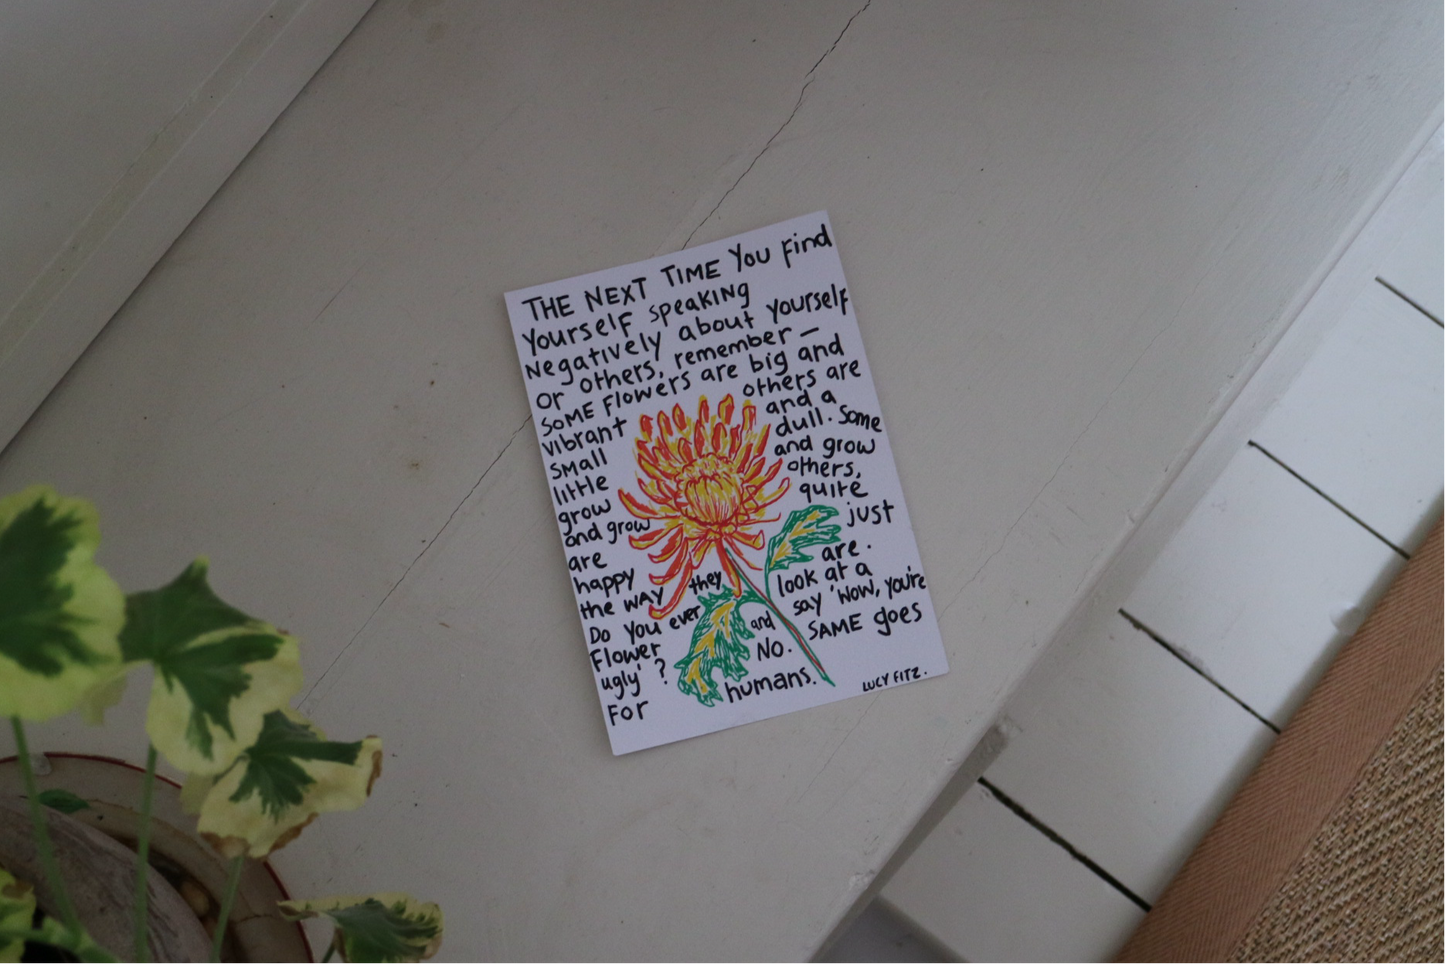 THE NEXT TIME YOU Find
Yourself speaking
Negatively about yourself
or others, remember —
SOME FLOWERS are big and
vibrant others are
small and a
little dull. Some
grow and grow
and grow others,
are quite
happy just
the WAY they are.
Do you ever look at a
Flower and say 'WOW, you're
ugly'? NO. SAME goes
FOR humans.
LUCY FITZ.